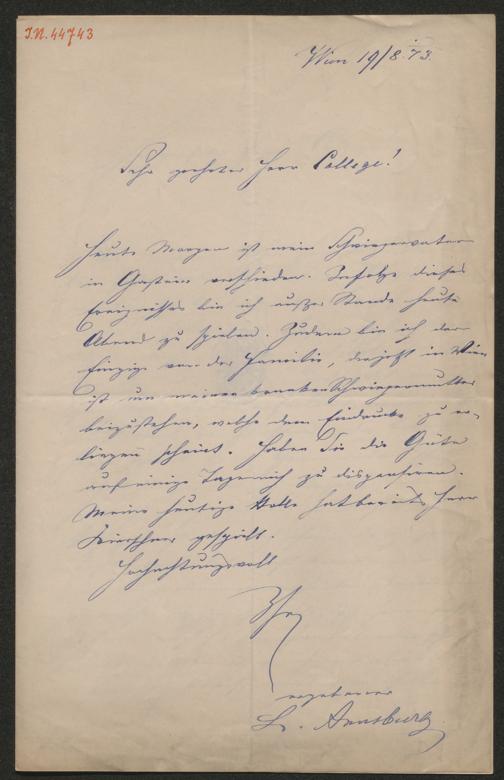 J.N. 44743
Wien 19/8. 73.
Sehr geehrter Herr College!
Heute Morgen ist mein Schwiegervater
in Gastein verschieden. Infolge dieses
Ereignisses bin ich außer Stande heute
Abend zu spielen. Zudem bin ich der
Einzige von der Familie, der jetzt in Wien
ist um meiner kranken Schwiegermutter
beizustehen, welche dem Eindrucke zu er-
liegen scheint. Haben Sie die Güte
auf einige Tage mich zu dispensiren.
Meine heutige Rolle hat bereits Herr
Kierschner gespielt.
Hochachtungsvoll
Ihr
ergebener
L. Arnsburg